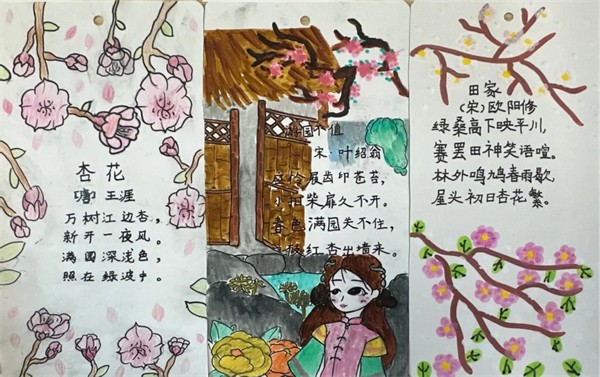 杏花
(唐)王涯
万树江边杏,
新开一夜风。
满園深浅色,
照在绿波中。
游园不值
宋·叶绍翁
应怜屐齿印苍苔,
小扣柴扉久不开。
春色满园关不住,
一枝红杏出墙来。
田家
(宋)欧阳修
绿桑高下映平川,
赛罢田神笑语喧。
林外鸣鸠春雨歇,
屋头初日杏花繁。